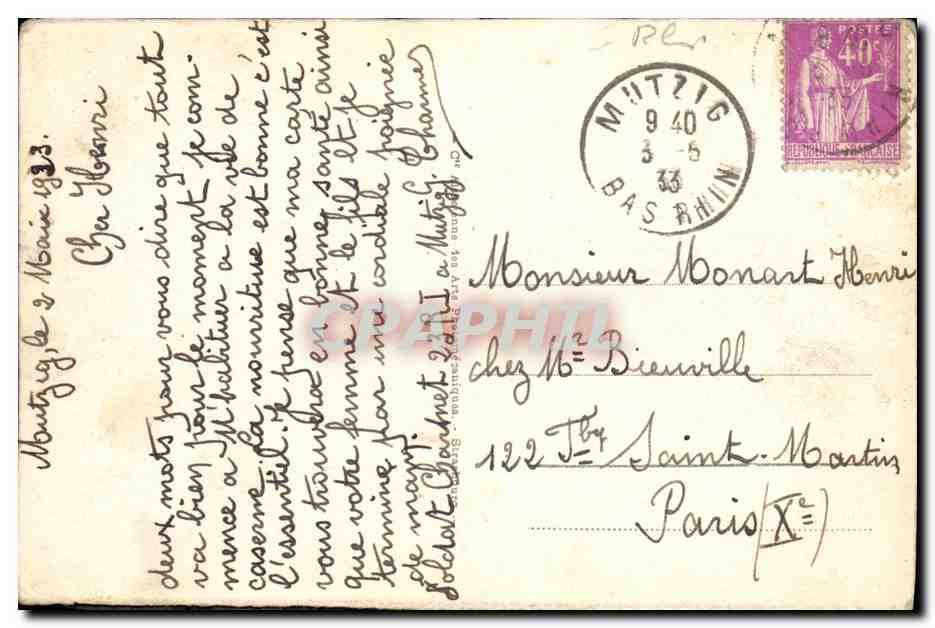 Mutzig, le 2 Mai 1933.
Cher Henri
deux mots pour vous dire que tout
va bien pour le moment je com-
mence a m'habituer a la vie de
caserne. La nourriture est bonne c'est
l'essentiel. je pense que ma carte
vous trouvera en bonne santé ainsi
que votre femme et le fils et je
termine par une cordiale poignée
de main. G. Charnet
Soldat Charnet 23 RI a Mutzig
Cie Alsacienne des Arts Photomécaniques. - Strasbourg
MUTZIG
9 40
3 - 5
33
BAS RHIN
POSTES
40c
REPUBLIQUE FRANÇAISE
Monsieur Monart Henri
chez Me Bienville
122 Fbg Saint-Martin
Paris (Xe)
CPAPHIL